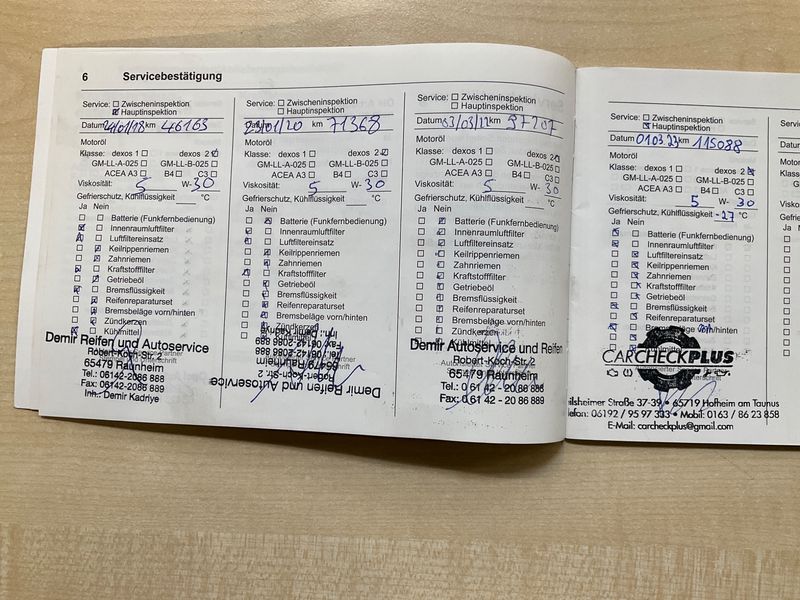 6 Servicebestätigung
Service: Zwischeninspektion
Hauptinspektion
Datum 24/01/18 km 46163
Motoröl
Klasse: dexos 1 dexos 2
GM-LL-A-025 GM-LL-B-025
ACEA A3 B4 C3
Viskosität: 5 W- 30
Gefrierschutz, Kühlflüssigkeit °C
Ja Nein
Batterie (Funkfernbedienung)
Innenraumluftfilter
Luftfiltereinsatz
Keilrippenriemen
Zahnriemen
Kraftstofffilter
Getriebeöl
Bremsflüssigkeit
Reifenreparaturset
Bremsbeläge vorn/hinten
Zündkerzen
Kühlmittel
Demir Reifen und Autoservice
Robert-Koch-Str. 2
65479 Raunheim
Tel.: 06142-2086 888
Fax: 06142-2086 889
Inh.: Demir Kadriye
Service: Zwischeninspektion
Hauptinspektion
Datum /01/20 km 71368
Motoröl
Klasse: dexos 1 dexos 2
GM-LL-A-025 GM-LL-B-025
ACEA A3 B4 C3
Viskosität: 5 W- 30
Gefrierschutz, Kühlflüssigkeit °C
Ja Nein
Batterie (Funkfernbedienung)
Innenraumluftfilter
Luftfiltereinsatz
Keilrippenriemen
Zahnriemen
Kraftstofffilter
Getriebeöl
Bremsflüssigkeit
Reifenreparaturset
Bremsbeläge vorn/hinten
Zündkerzen
Demir Reifen und Autoservice
Robert-Koch-Str. 2
65479 Raunheim
Tel.: 06142-2086 888
Fax: 06142-2086 889
Inh.: Demir Kadriye
Service: Zwischeninspektion
Hauptinspektion
Datum 03/03/ km 97207
Motoröl
Klasse: dexos 1 dexos 2
GM-LL-A-025 GM-LL-B-025
ACEA A3 B4 C3
Viskosität: 5 W- 30
Gefrierschutz, Kühlflüssigkeit °C
Ja Nein
Batterie (Funkfernbedienung)
Innenraumluftfilter
Luftfiltereinsatz
Keilrippenriemen
Zahnriemen
Kraftstofffilter
Getriebeöl
Bremsflüssigkeit
Reifenreparaturset
Bremsbeläge vorn/hinten
Zündkerzen
Kühlmittel
Demir Autoservice und Reifen
Robert-Koch-Str. 2
65479 Raunheim
Tel.: 0 61 42 - 20 86 888
Fax: 0 61 42 - 20 86 889
Service: Zwischeninspektion
Hauptinspektion
Datum 01 03 23 km 115088
Motoröl
Klasse: dexos 1 dexos 2
GM-LL-A-025 GM-LL-B-025
ACEA A3 B4 C3
Viskosität: 5 W- 30
Gefrierschutz, Kühlflüssigkeit -27 °C
Ja Nein
Batterie (Funkfernbedienung)
Innenraumluftfilter
Luftfiltereinsatz
Keilrippenriemen
Zahnriemen
Kraftstofffilter
Getriebeöl
Bremsflüssigkeit
Reifenreparaturset
Bremsbeläge vorn/hinten
CARCHECKPLUS
ilsheimer Straße 37-39 • 65719 Hofheim am Taunus
lefon: 06192 / 95 97 333 • Mobil: 0163 / 86 23 858
E-Mail: carcheckplus@gmail.com